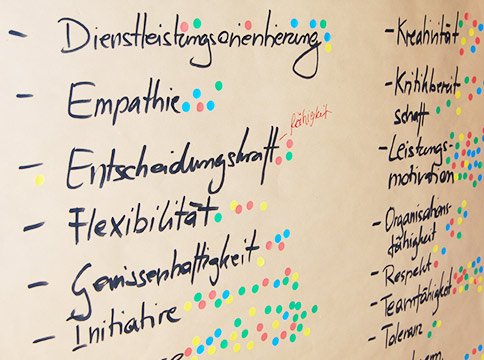 - Dienstleistungsorientierung
- Empathie
fähigkeit
- Entscheidungskraft
- Flexibilität
- Gewissenhaftigkeit
- Initiative
- Kreativität
- Kritikbereit
schaft
- Leistungs-
motivation
- Organisations-
fähigkeit
- Respekt
- Teamfähigkeit
- Toleranz